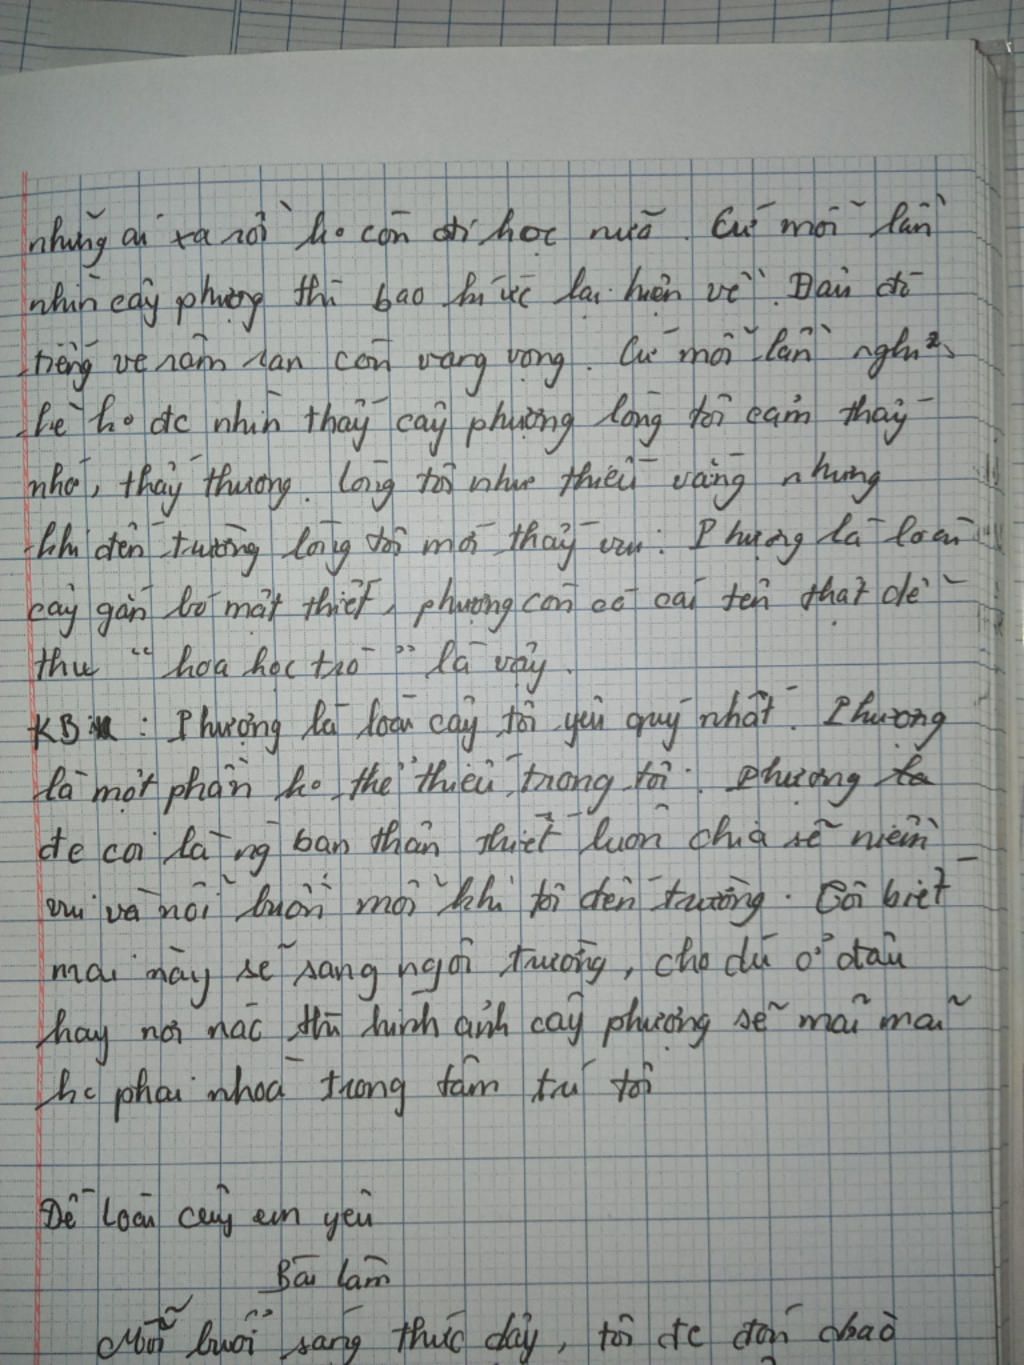 những ai xa rồi ko còn đi học nữa. Cứ mỗi lần
nhìn cây phượng thì bao kí ức lại hiện về. Đâu đó
tiếng ve râm ran còn vang vọng. Cứ mỗi lần nghỉ
hè ko đc nhìn thấy cây phượng lòng tôi cảm thấy
nhớ, thấy thương. Lòng tôi như thiếu vắng nhưng
khi đến trường lòng tôi mới thấy vui. Phượng là loài
cây gắn bó mật thiết, phượng còn có cái tên thật dễ
thư "hoa học trò" là vậy.
KB : Phượng là loài cây tôi yêu quý nhất. Phượng
là một phần ko thể thiếu trong tôi. Phượng
đc coi là ng bạn thân thiết luôn chia sẽ niềm
vui và nỗi buồn mỗi khi tôi đến trường. Rồi biết
mai này sẽ sang ngôi trường, cho dù ở đâu
hay nơi nào thì hình ảnh cây phượng sẽ mãi mãi
ko phai nhoà trong tâm trí tôi
Đề loài cây em yêu
Bài làm
Mỗi buổi sáng thức dậy, tôi đc đón chào